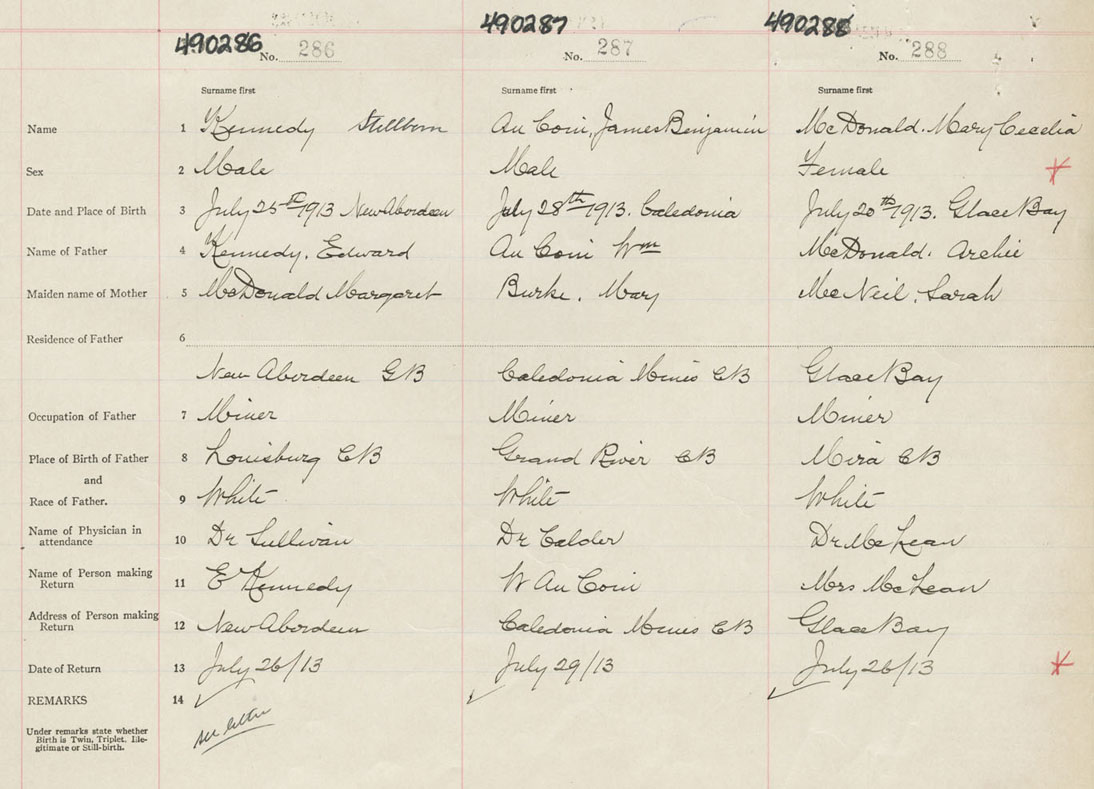 490286 490287 490288
No. 286 No. 287 No. 288
Surname first Surname first Surname first
Name 1 Kennedy Stillborn Au Coin, James Benjamin McDonald. Mary Cecelia
Sex 2 Male Male Female
Date and Place of Birth 3 July 25th 1913 New Aberdeen July 28th 1913. Caledonia July 20th 1913. Glace Bay
Name of Father 4 Kennedy, Edward Au Coin Wm McDonald. Archie
Maiden name of Mother 5 McDonald Margaret Burke. Mary McNeil, Sarah
Residence of Father 6
New Aberdeen CB Caledonia Mines CB Glace Bay
Occupation of Father 7 Miner Miner Miner
Place of Birth of Father 8 Louisburg CB Grand River CB Mira CB
and
Race of Father. 9 White White White
Name of Physician in
attendance 10 Dr Sullivan Dr Calder Dr McLean
Name of Person making
Return 11 E Kennedy W Au Coin Mrs McLean
Address of Person making
Return 12 New Aberdeen Caledonia Mines CB Glace Bay
Date of Return 13 July 26/13 July 29/13 July 26/13
REMARKS 14
see letter
Under remarks state whether
Birth is Twin, Triplet, Ille-
gitimate or Still-birth.